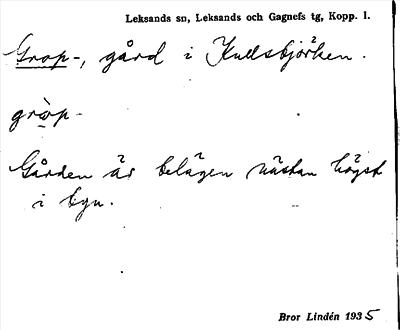 Leksands sn, Leksands och Gagnefs tg, Kopp. l.
Grop-, gård i Kullsbjörken.
gròp-
Gården är belägen nästan högst
i byn.
Bror Lindén 1935